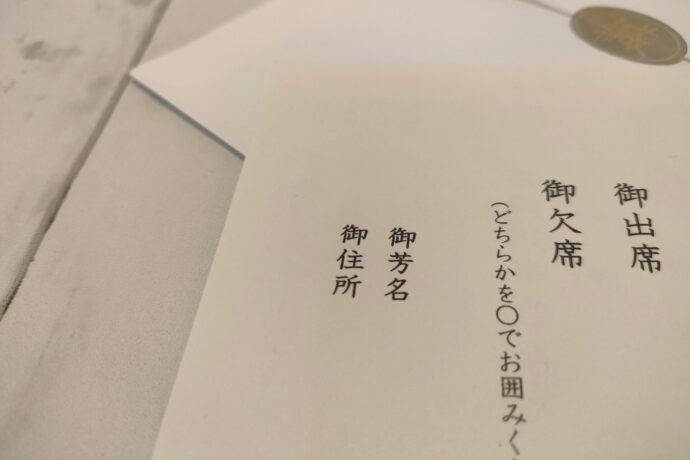 御出席
御欠席
(どちらかを〇でお囲みく
御芳名
御住所